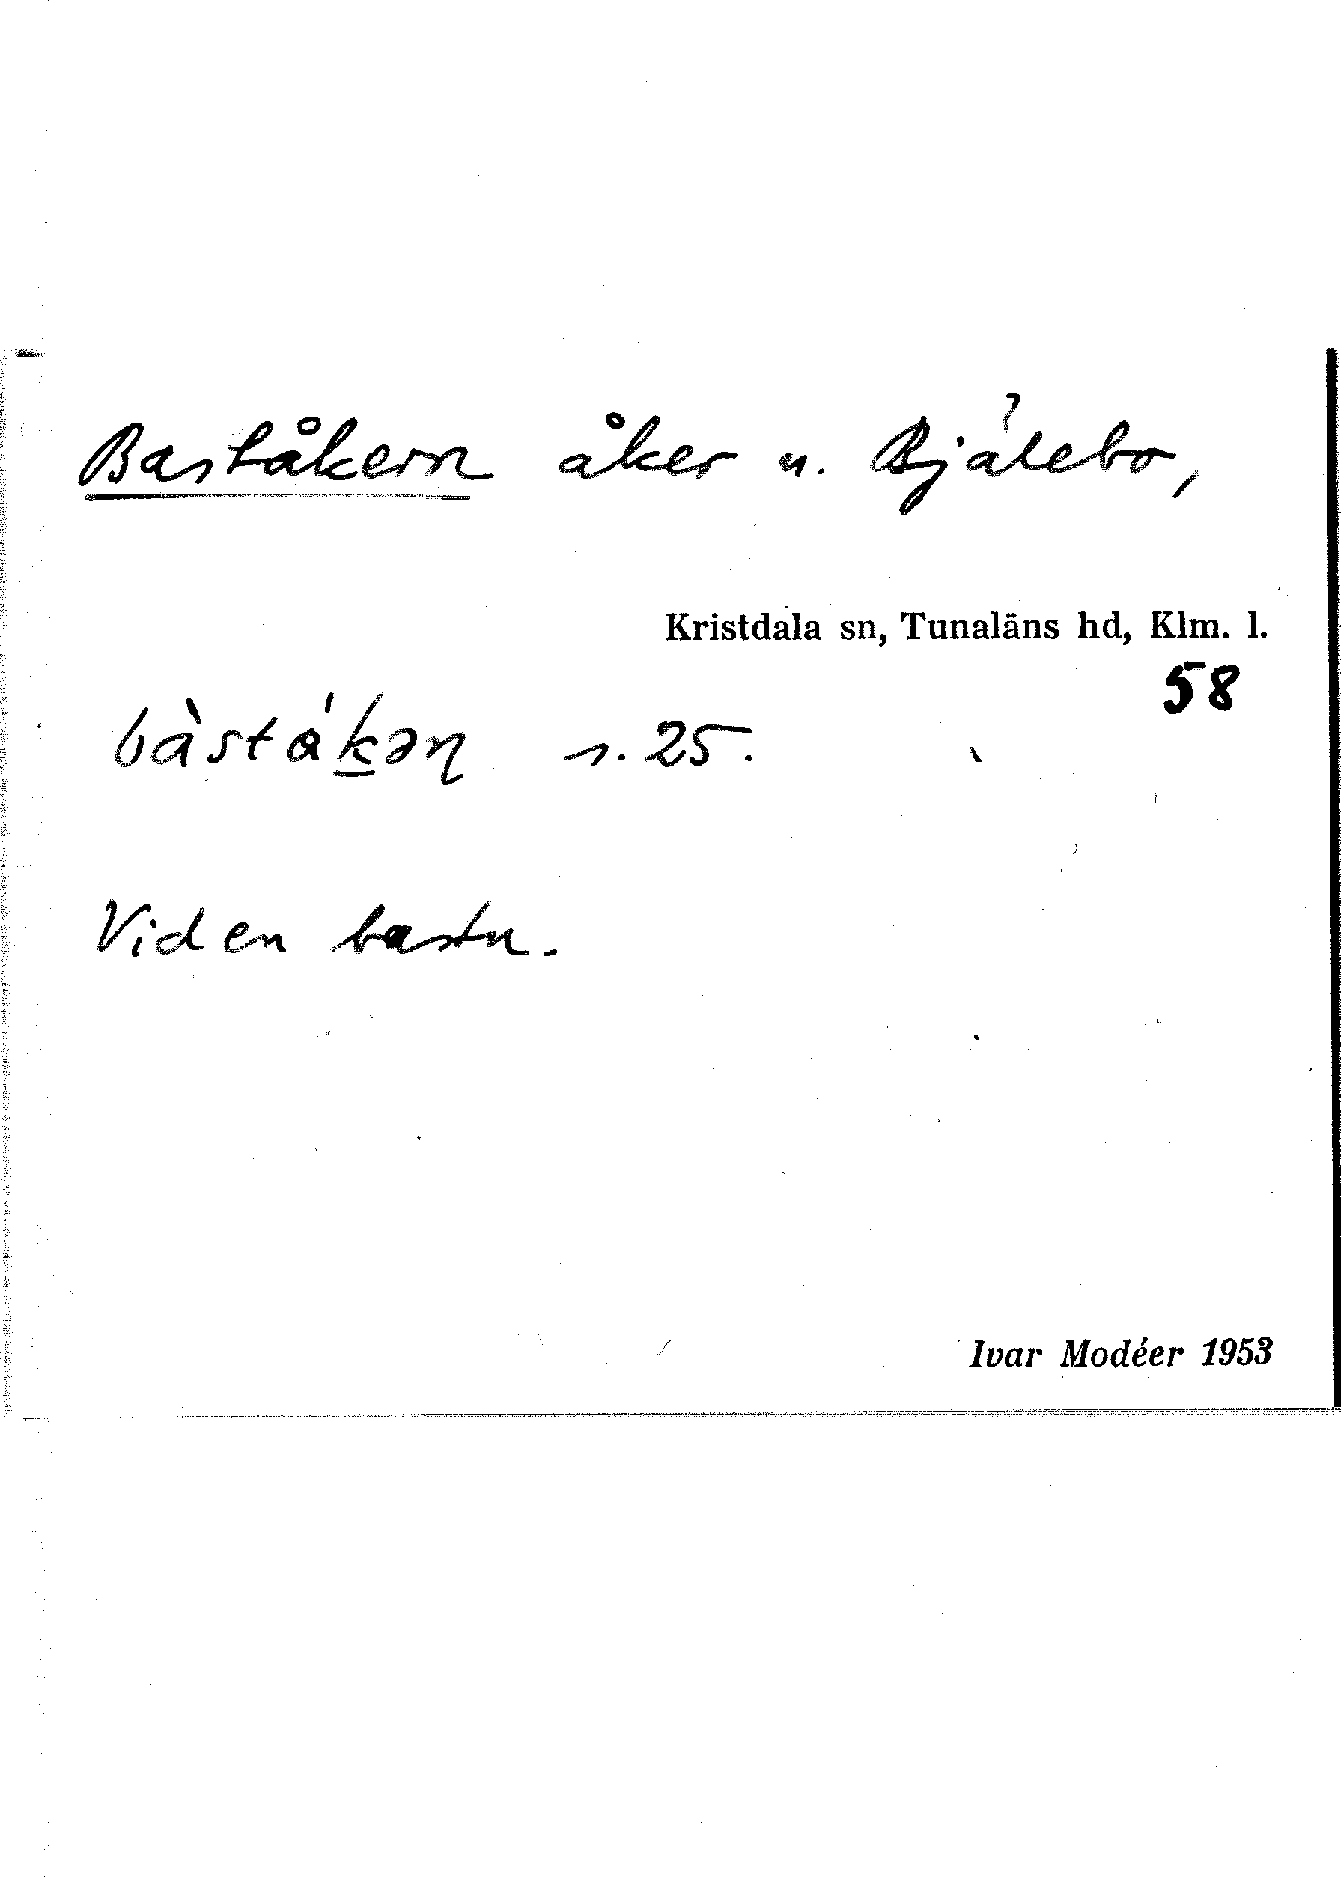 Baståkern åker u. Bjälebo,
Kristdala sn, Tunaläns hd, Klm. l.
58
s. 25.
Vid en bastu.
Ivar Modéer 1953